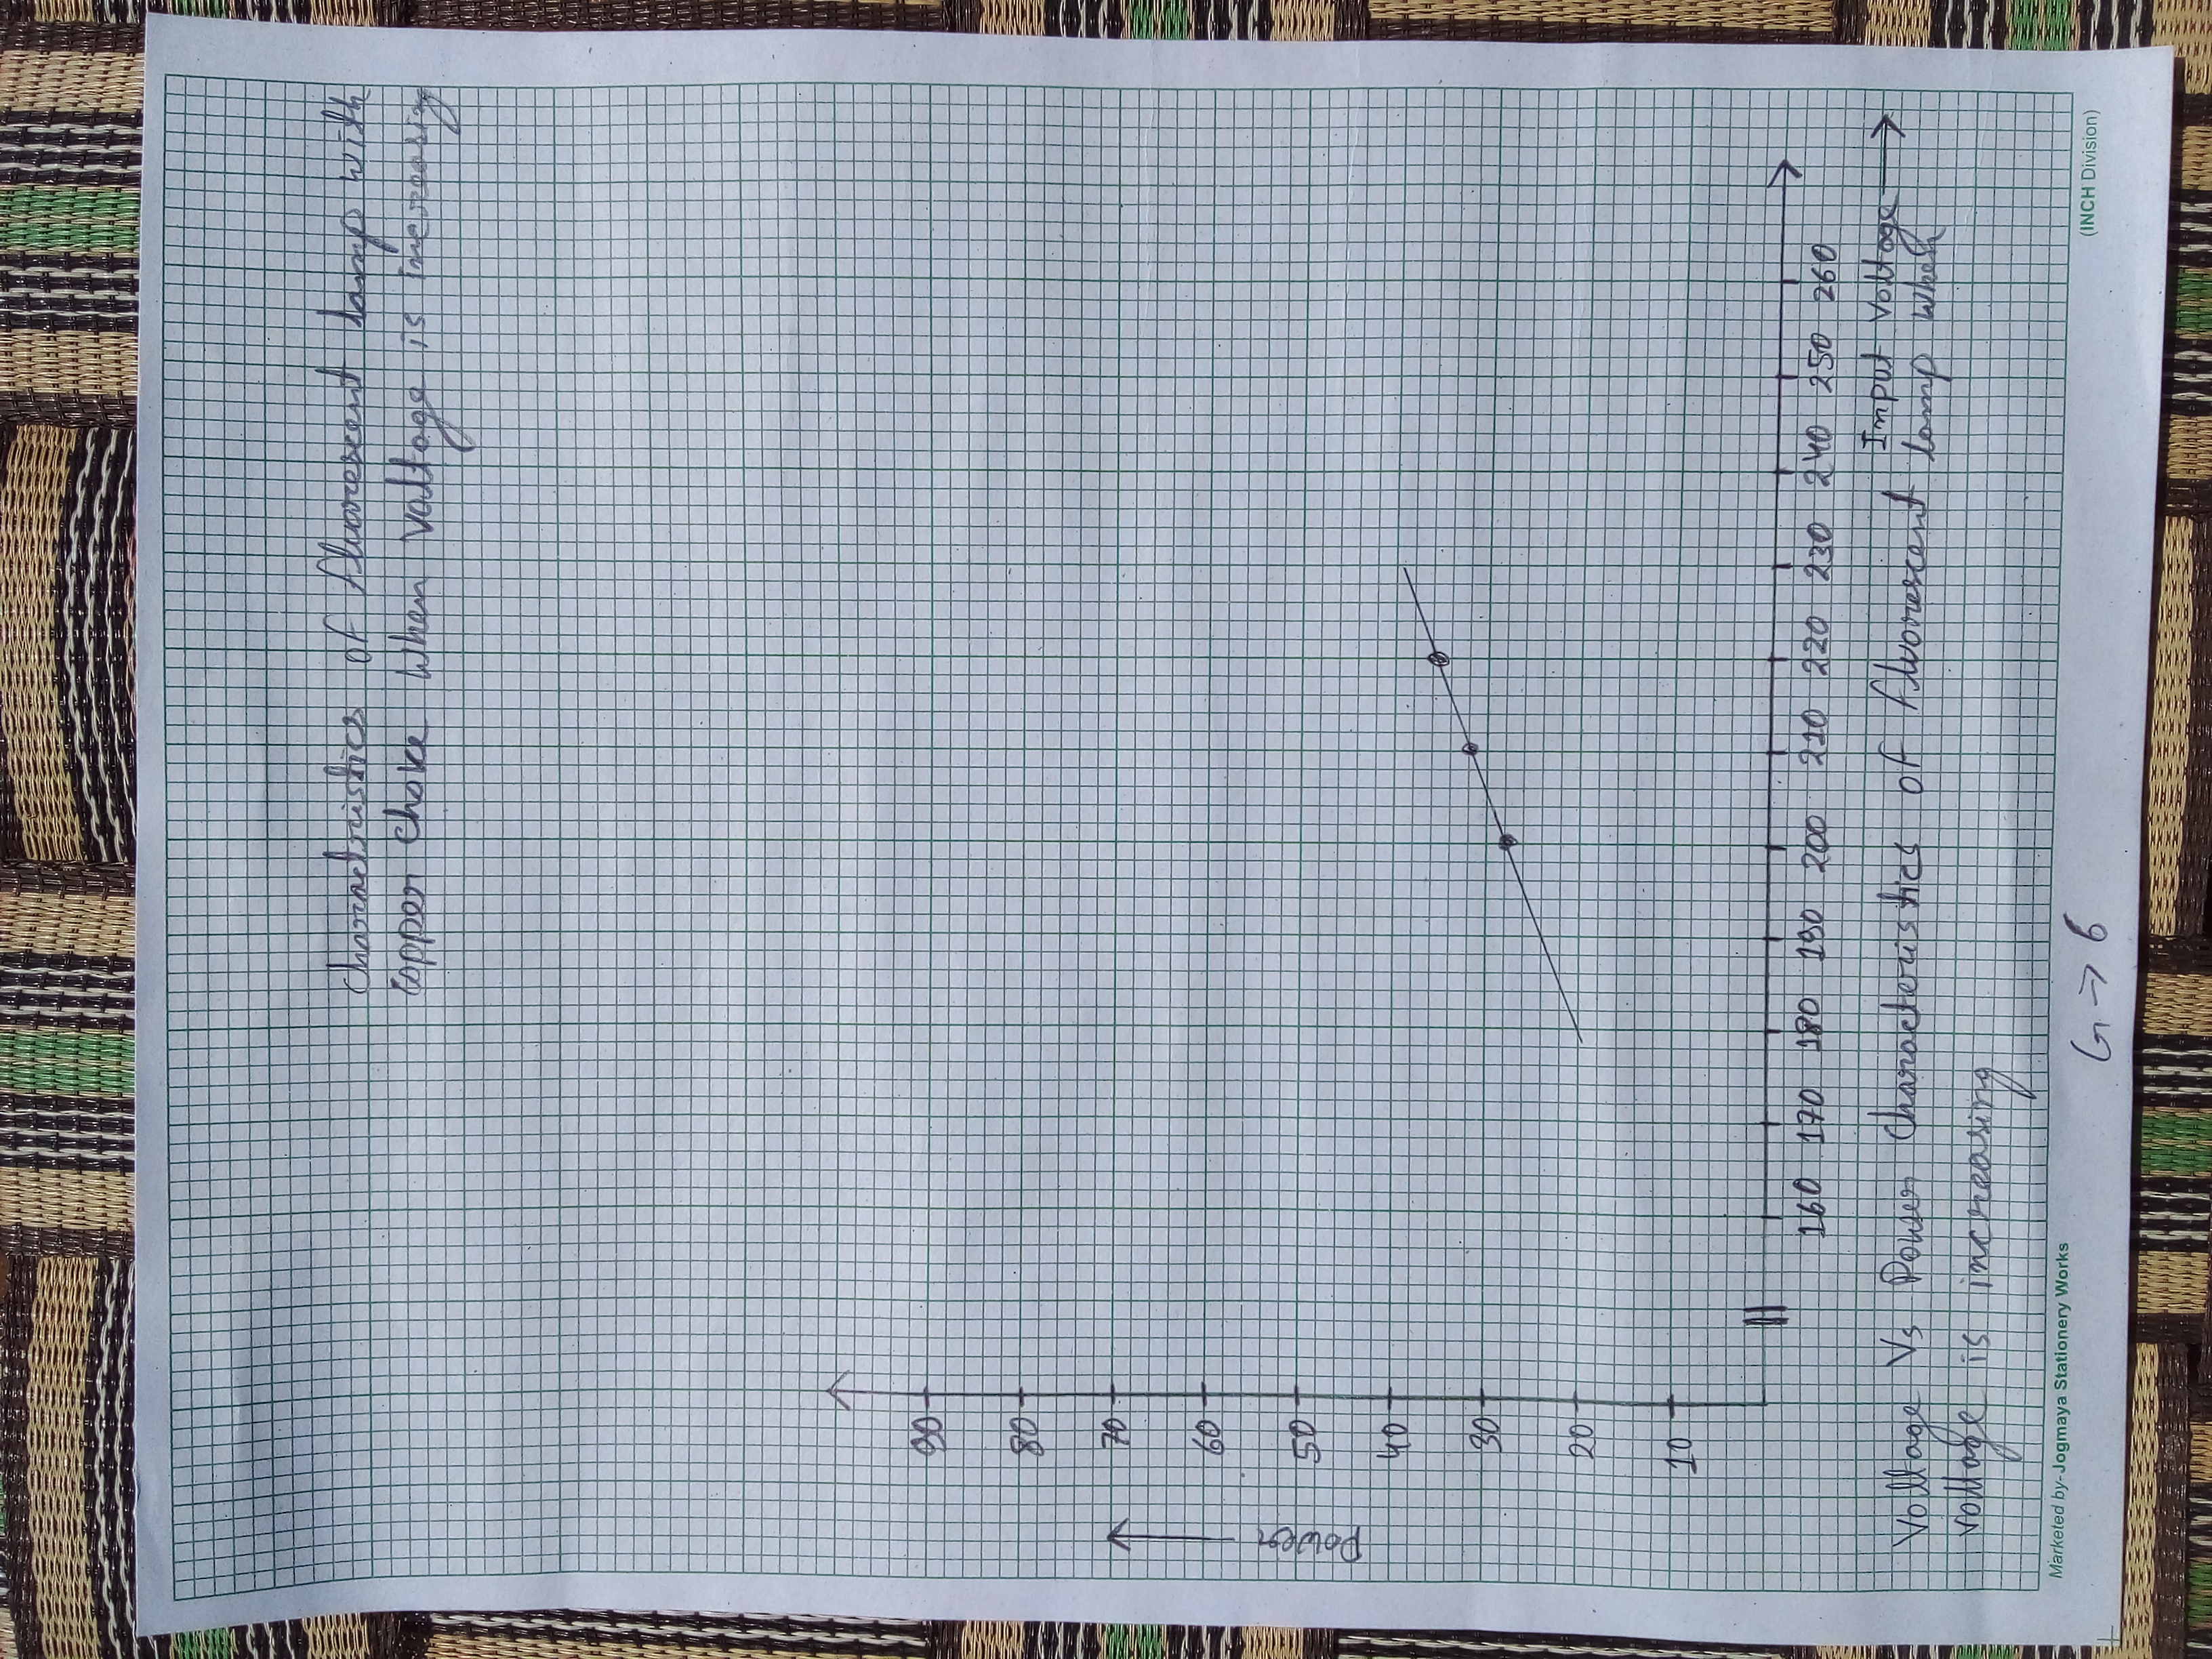 Charactristics of fluorescent lamp with
copper choke when voltage is increasing
90
80
70
60
50
40
30
20
10
Power
160 170 180 190 200 210 220 230 240 250 260
Input voltage
Voltage Vs Power Characteristics of fluorescent lamp when
voltage is increasing
Marketed by- Jogmaya Stationery Works
(INCH Division)
G → 6